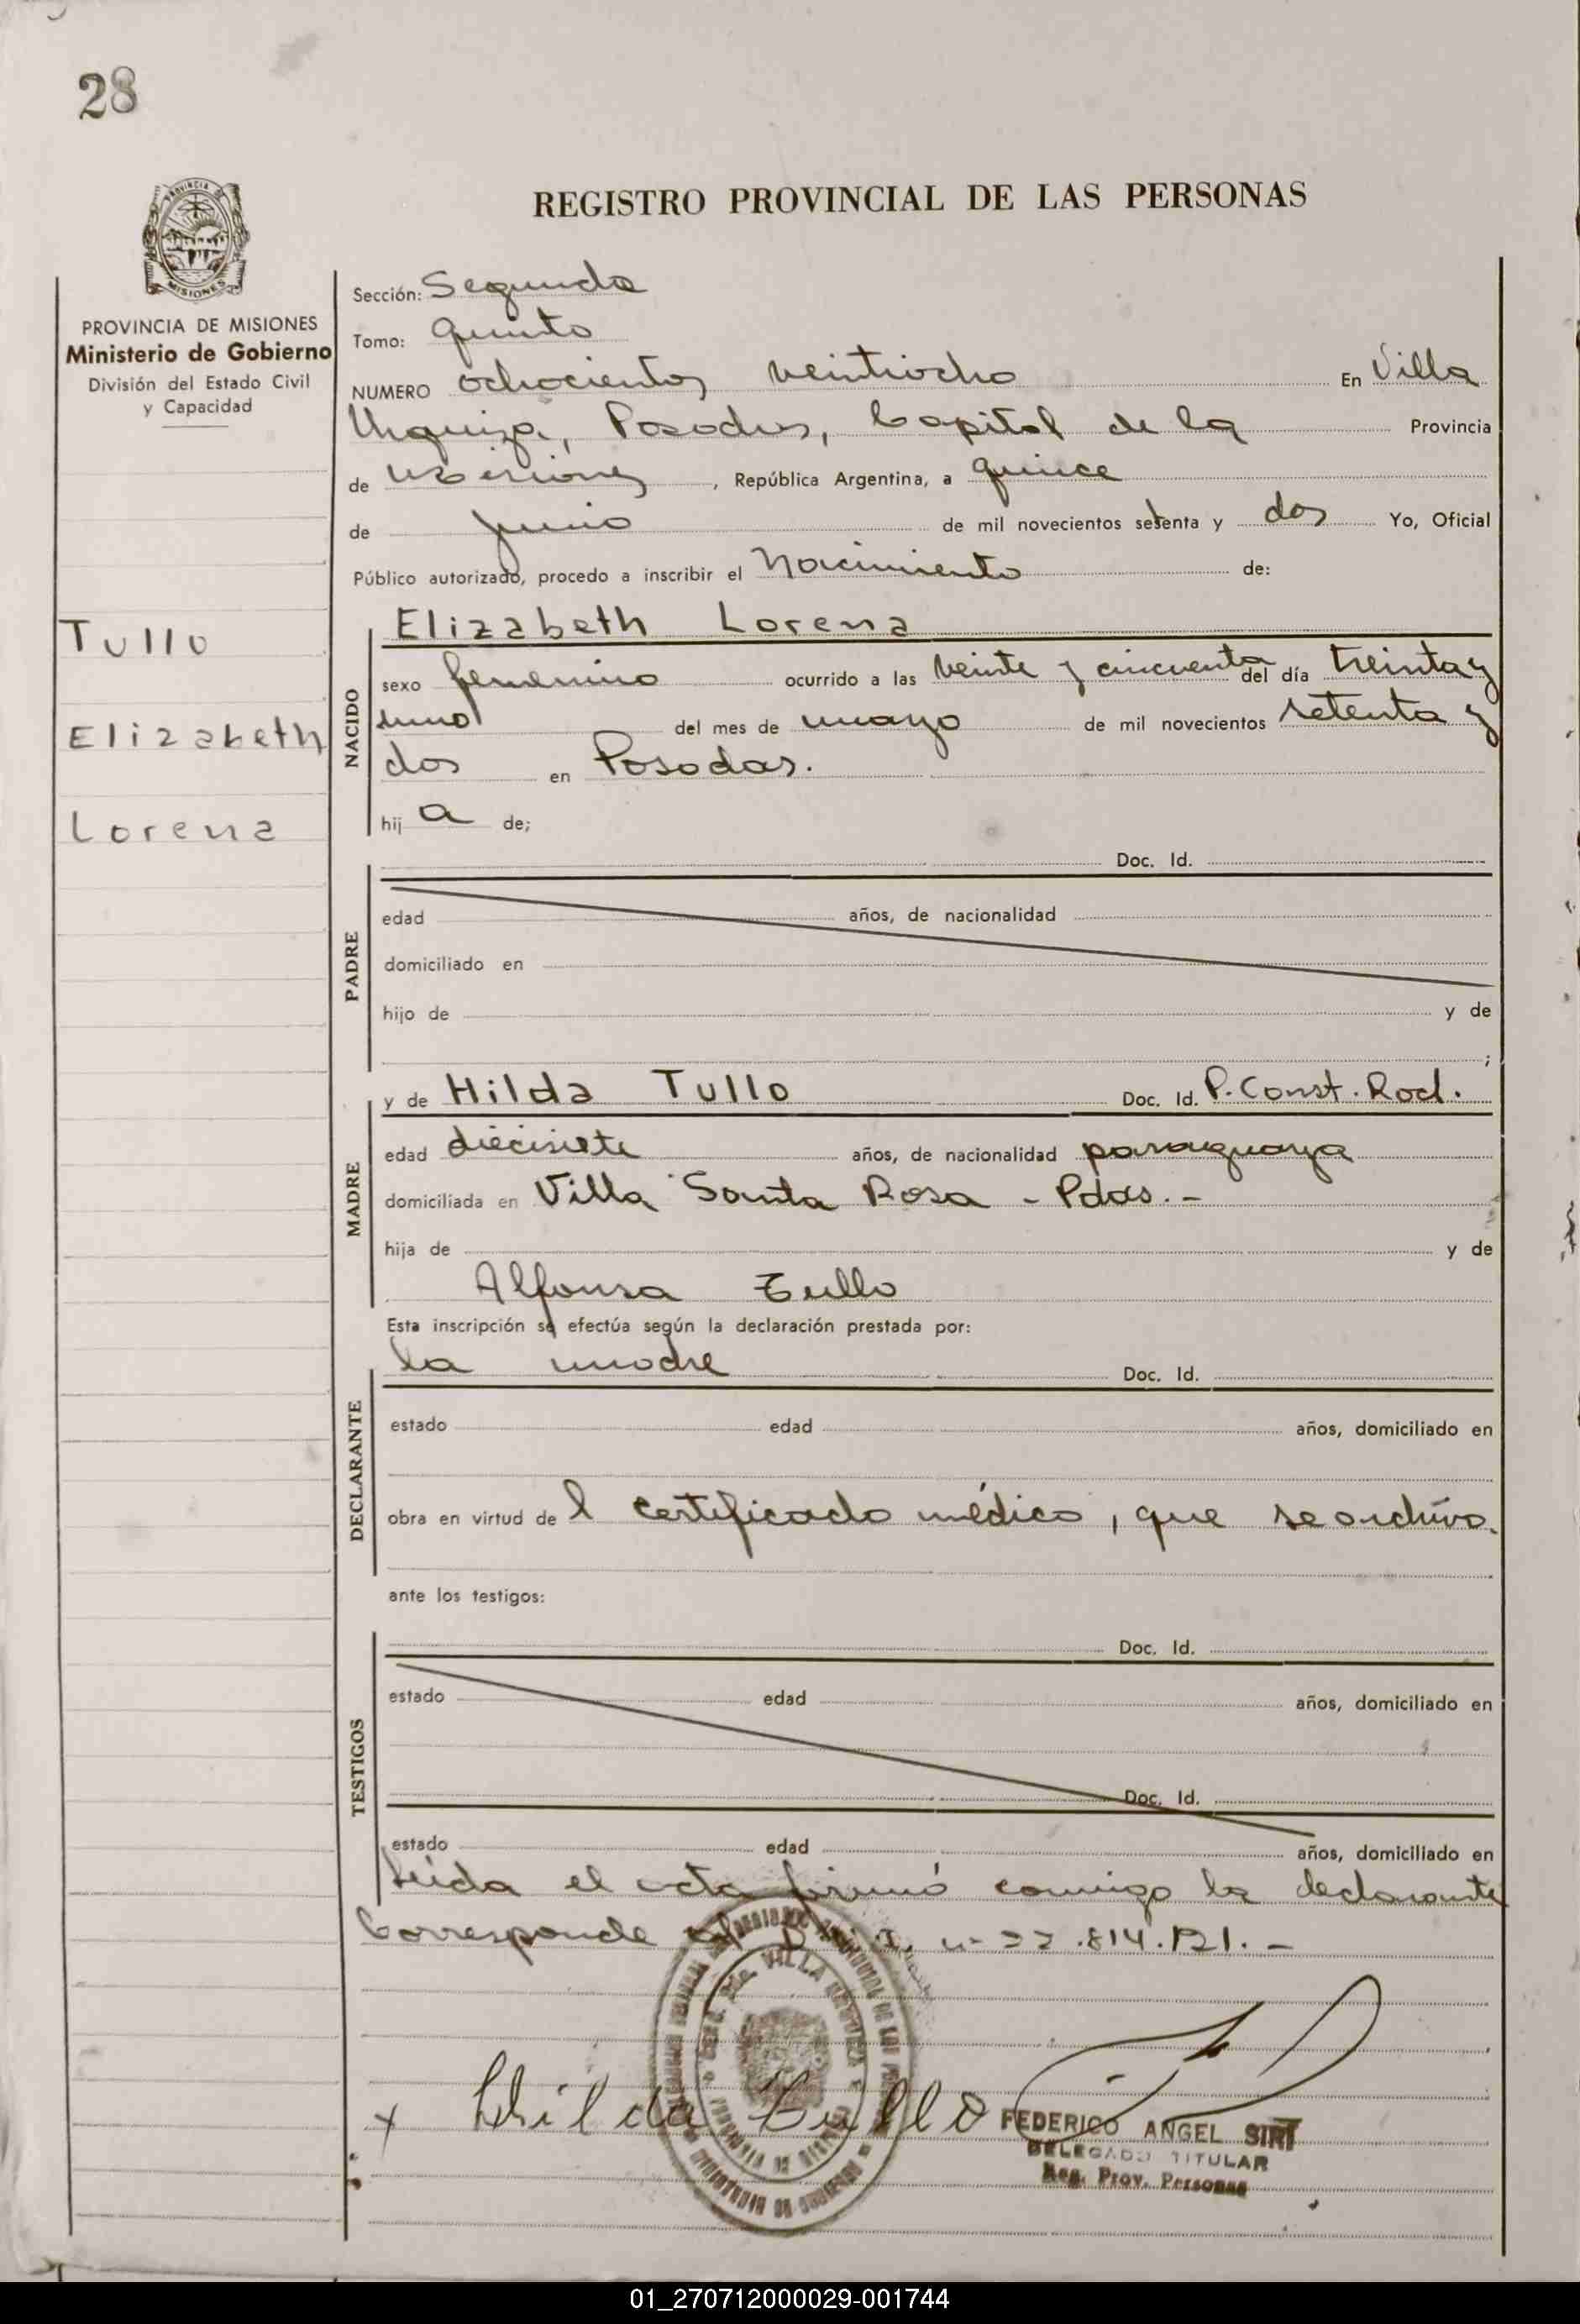 28
REGISTRO PROVINCIAL DE LAS PERSONAS
PROVINCIA DE MISIONES
Ministerio de Gobierno
División del Estado Civil
y Capacidad
Tullo
Elizabeth
Lorena
Sección: Segunda
Tomo: quinto
NUMERO ochocientos veintiocho En Villa
Urquiza, Posadas, Capital de la Provincia
de Misiones, República Argentina, a quince
de junio de mil novecientos setenta y dos Yo, Oficial
Público autorizado, procedo a inscribir el Nacimiento de:
Elizabeth Lorena
NACIDO
sexo femenino ocurrido a las veinte y cincuenta del día treinta y
uno del mes de mayo de mil novecientos setenta y
dos en Posadas.
hij a de;
Doc. Id.
PADRE
edad años, de nacionalidad
domiciliado en
hijo de y de
;
y de Hilda Tullo Doc. Id. P. Const. Rod.
MADRE
edad diecisiete años, de nacionalidad paraguaya
domiciliada en Villa Santa Rosa - Pdas. -
hija de y de
Alfonsa Tullo
Esta inscripción se efectúa según la declaración prestada por:
la madre Doc. Id.
DECLARANTE
estado edad años, domiciliado en
obra en virtud de l certificado médico, que se archiva.
ante los testigos:
Doc. Id.
TESTIGOS
estado edad años, domiciliado en
Doc. Id.
estado edad años, domiciliado en
Leída el acta firmó conmigo la declarante
Corresponde .814.121. -
x Hilda Tullo
FEDERICO ANGEL SIRT
DELEGADO TITULAR
Reg. Prov. Personas
01_270712000029-001744